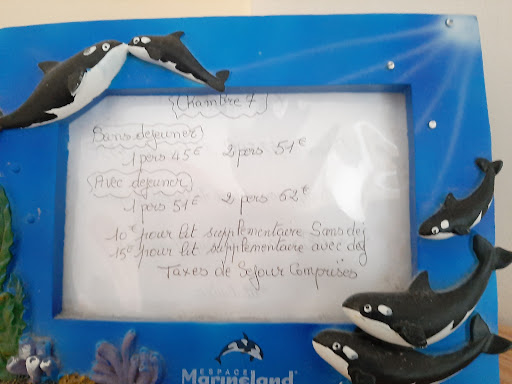 Chambre 7
Sans dejeuner
1 pers 45€ 2 pers 51€
Avec dejeuner
1 pers 51€ 2 pers 62€
10€ pour lit supplementaire Sans dej
15€ pour lit supplementaire avec dej
Taxes de Sejour Comprises
ESPACE
Marineland